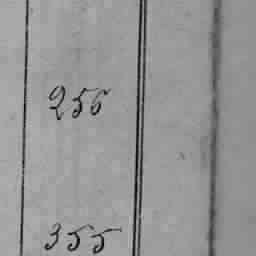 256
355